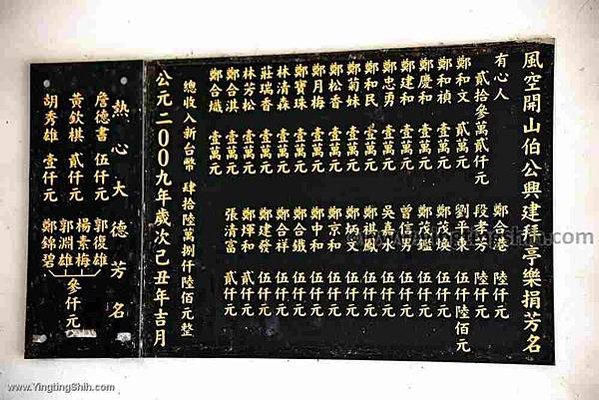 風空開山伯公興建拜亭樂捐芳名
有心人 貳拾參萬貳仟元
鄭和文 貳萬元
鄭和禎 壹萬元
鄭慶和 壹萬元
鄭建和 壹萬元
鄭忠勇 壹萬元
鄭和民 壹萬元
鄭菊妹 壹萬元
鄭松香 壹萬元
鄭月梅 壹萬元
鄭寶珠 壹萬元
林清森 壹萬元
莊瑞香 壹萬元
林芳松 壹萬元
鄭合淇 壹萬元
鄭合熾 壹萬元
鄭合港 陸仟元
段孝芳 陸仟元
劉 伍仟陸佰元
鄭茂煥 伍仟元
鄭茂鑑 伍仟元
曾 勇 伍仟元
吳嘉水 伍仟元
鄭棋鳳 伍仟元
鄭炳文 伍仟元
鄭京和 伍仟元
鄭中和 伍仟元
鄭合鐵 伍仟元
鄭合祥 伍仟元
鄭建發 伍仟元
鄭煇和 貳仟元
張清富 貳仟元
總收入新台幣 肆拾陸萬捌仟陸佰元整
公元二00九年歲次己丑年吉月
熱心大德芳名
詹德書 伍仟元
黃欽棋 貳仟元
胡秀雄 壹仟元
郭復雄
楊素梅
郭淵雄
鄭錦碧
參仟元
www.YingtingShih.com